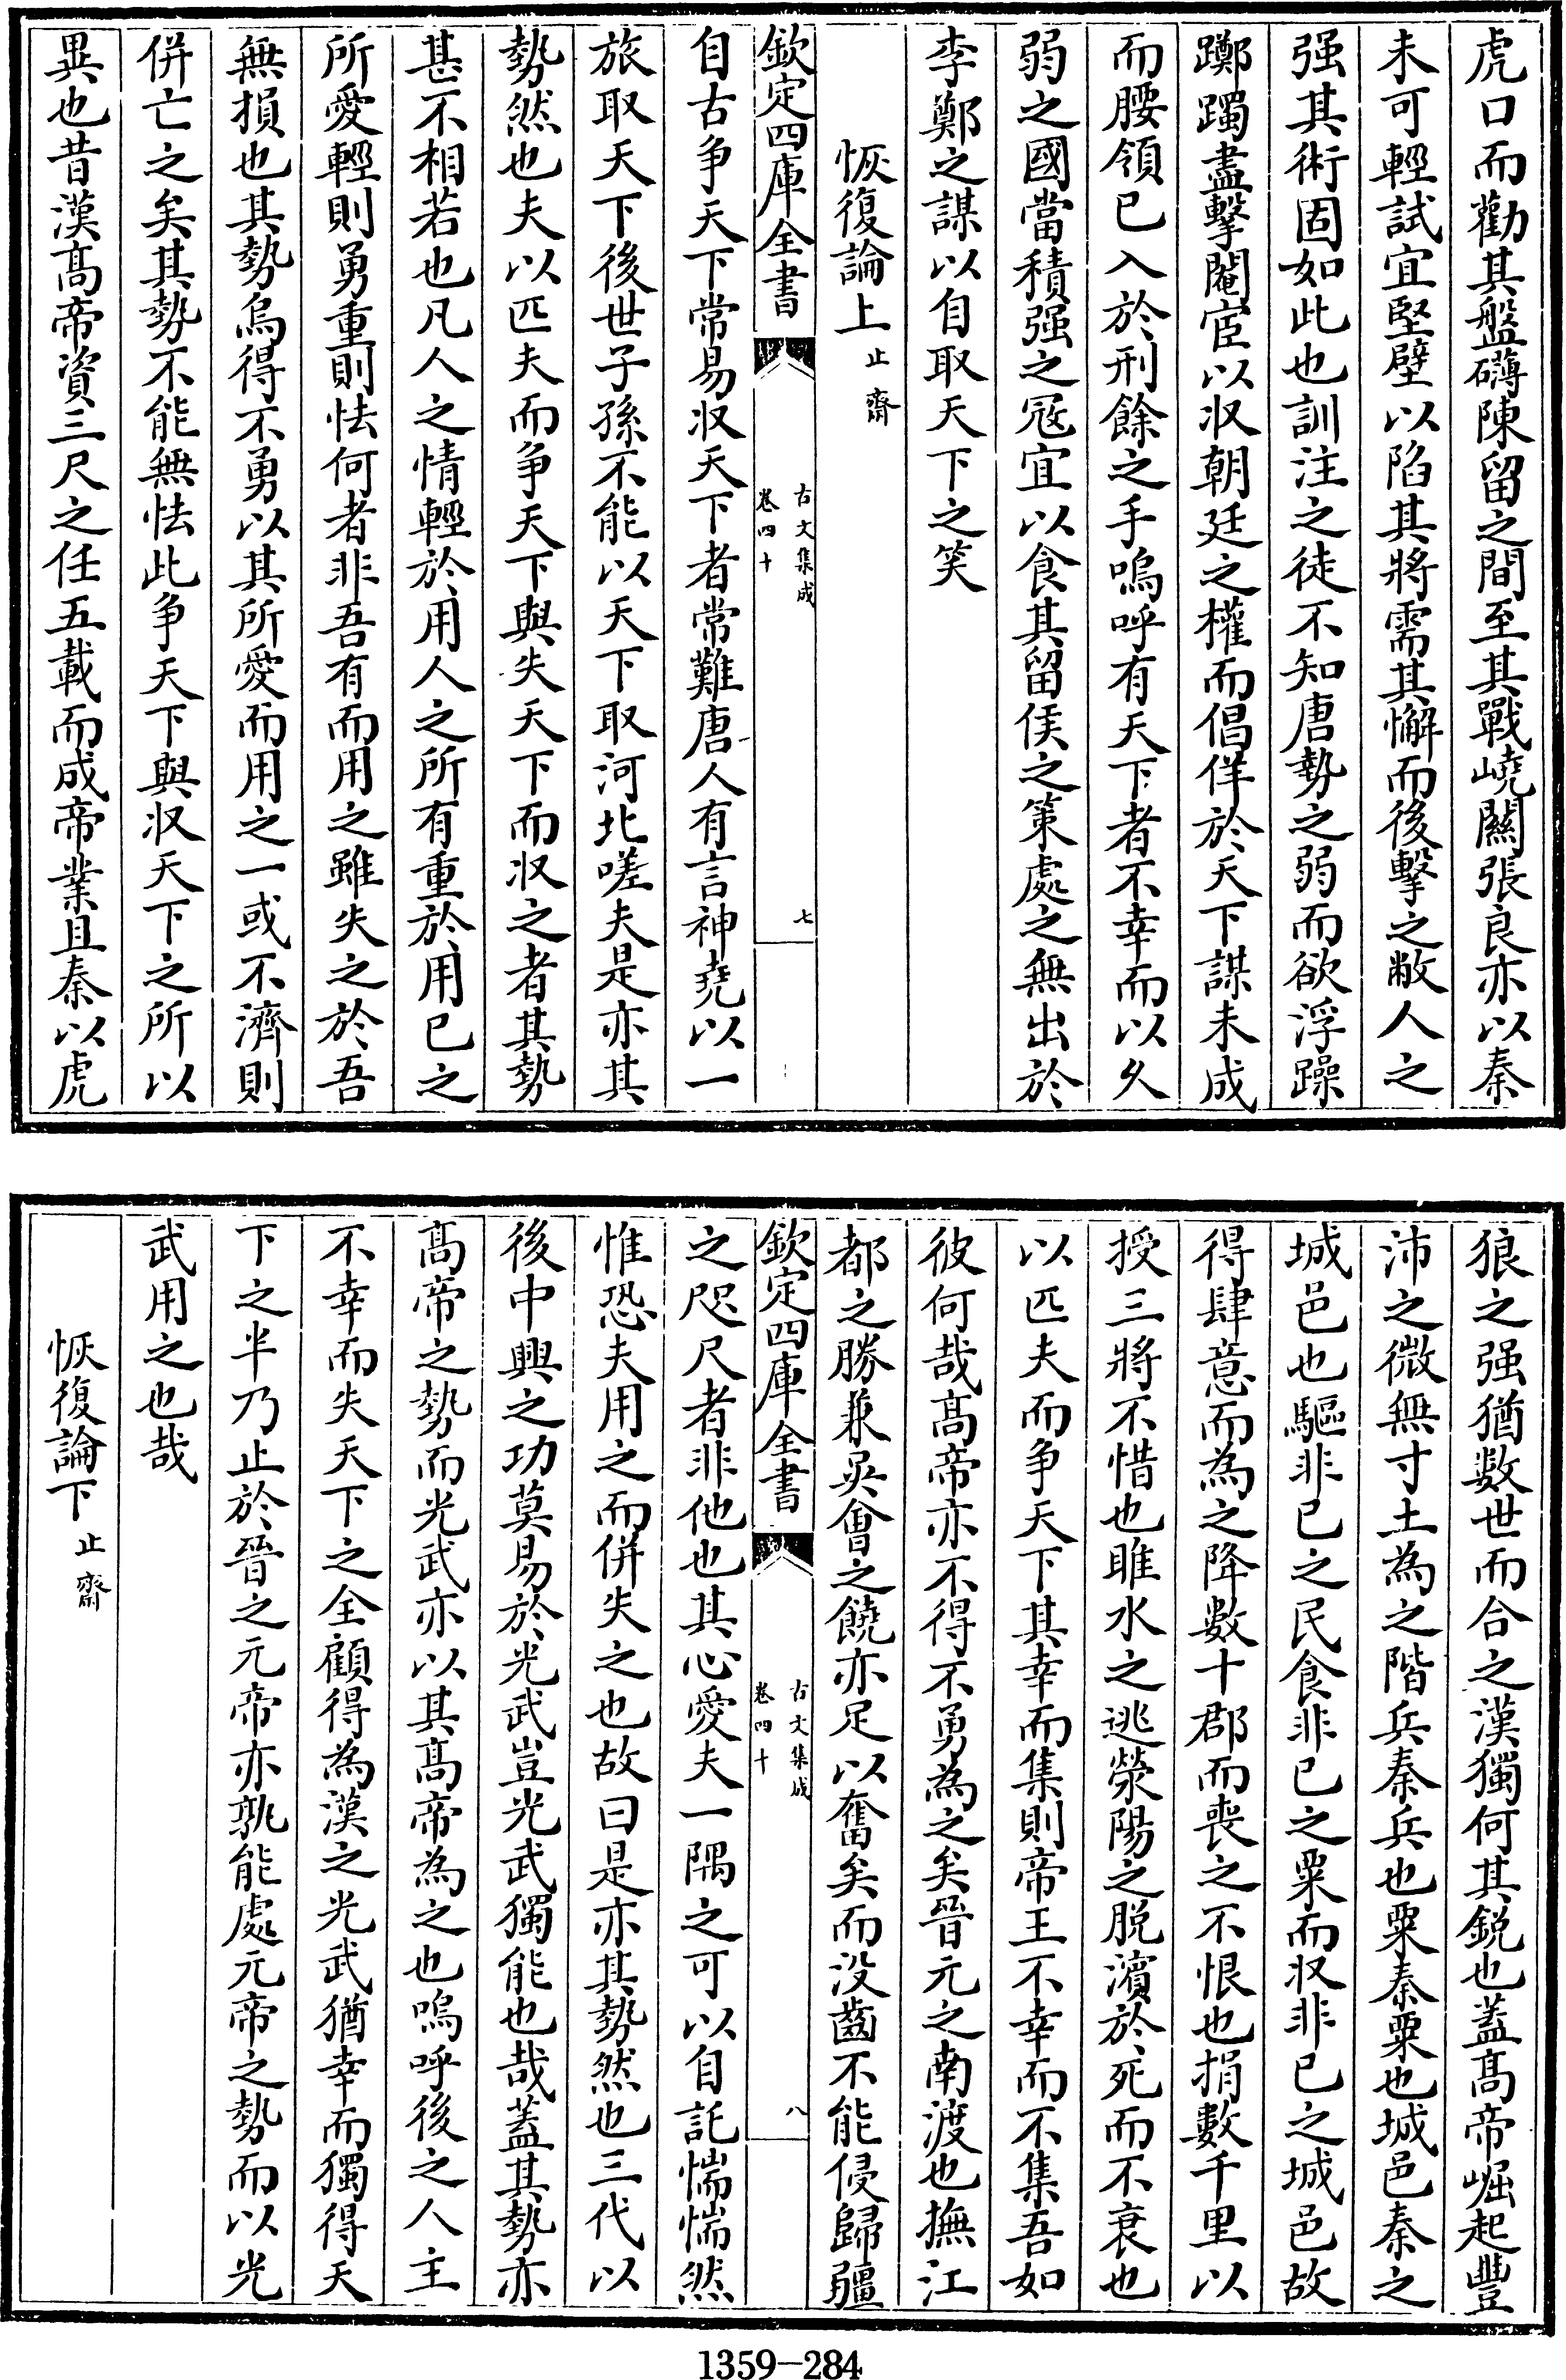 虎口而勸其盤礴陳留之間至其戰嶢關張良亦以秦
未可輕試宜堅壁以陷其將需其懈而後擊之敝人之
强其術固如此也訓注之徒不知唐勢之弱而欲浮躁
躑躅盡擊閹宦以收朝廷之權而倡佯於天下謀未成
而腰領已入於刑餘之手嗚呼有天下者不幸而以久
弱之國當積强之冦宜以食其留侯之策處之無出於
李鄭之謀以自取天下之笑
恢復論上 止齋
欽定四庫全書 古文集成 卷四十 七
自古争天下常易收天下者常難唐人有言神堯以一
旅取天下後世子孫不能以天下取河北嗟夫是亦其
勢然也夫以匹夫而争天下與失天下而收之者其勢
甚不相若也凡人之情輕於用人之所有重於用已之
所愛輕則勇重則怯何者非吾有而用之雖失之於吾
無損也其勢烏得不勇以其所愛而用之一或不濟則
併亡之矣其勢不能無怯此争天下與收天下之所以
異也昔漢髙帝資三尺之任五載而成帝業且秦以虎
狼之强猶數世而合之漢獨何其鋭也蓋髙帝崛起豐
沛之微無寸土為之階兵秦兵也粟秦粟也城邑秦之
城邑也驅非已之民食非已之粟而收非已之城邑故
得肆意而為之降數十郡而喪之不恨也捐數千里以
授三將不惜也睢水之逃滎陽之脱濵於死而不衰也
以匹夫而争天下其幸而集則帝王不幸而不集吾如
彼何哉髙帝亦不得不勇為之矣晉元之南渡也撫江
都之勝兼吳會之饒亦足以奮矣而没齒不能侵歸疆
欽定四庫全書 古文集成 卷四十 八
之咫尺者非他也其心愛夫一隅之可以自託惴惴然
惟恐夫用之而併失之也故曰是亦其勢然也三代以
後中興之功莫易於光武豈光武獨能也哉蓋其勢亦
髙帝之勢而光武亦以其髙帝為之也嗚呼後之人主
不幸而失天下之全顧得為漢之光武猶幸而獨得天
下之半乃止於晉之元帝亦孰能處元帝之勢而以光
武用之也哉
恢復論下 止齋
1359-284